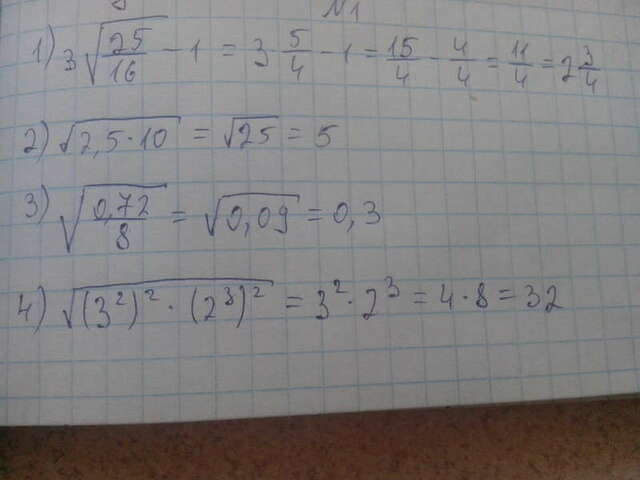 N1
1) 3√(25/16) - 1 = 3 5/4 - 1 = 15/4 - 4/4 = 11/4 = 2 3/4
2) √(2,5·10) = √25 = 5
3) √(0,72/8) = √0,09 = 0,3
4) √((3²)²·(2³)²) = 3²·2³ = 4·8 = 32